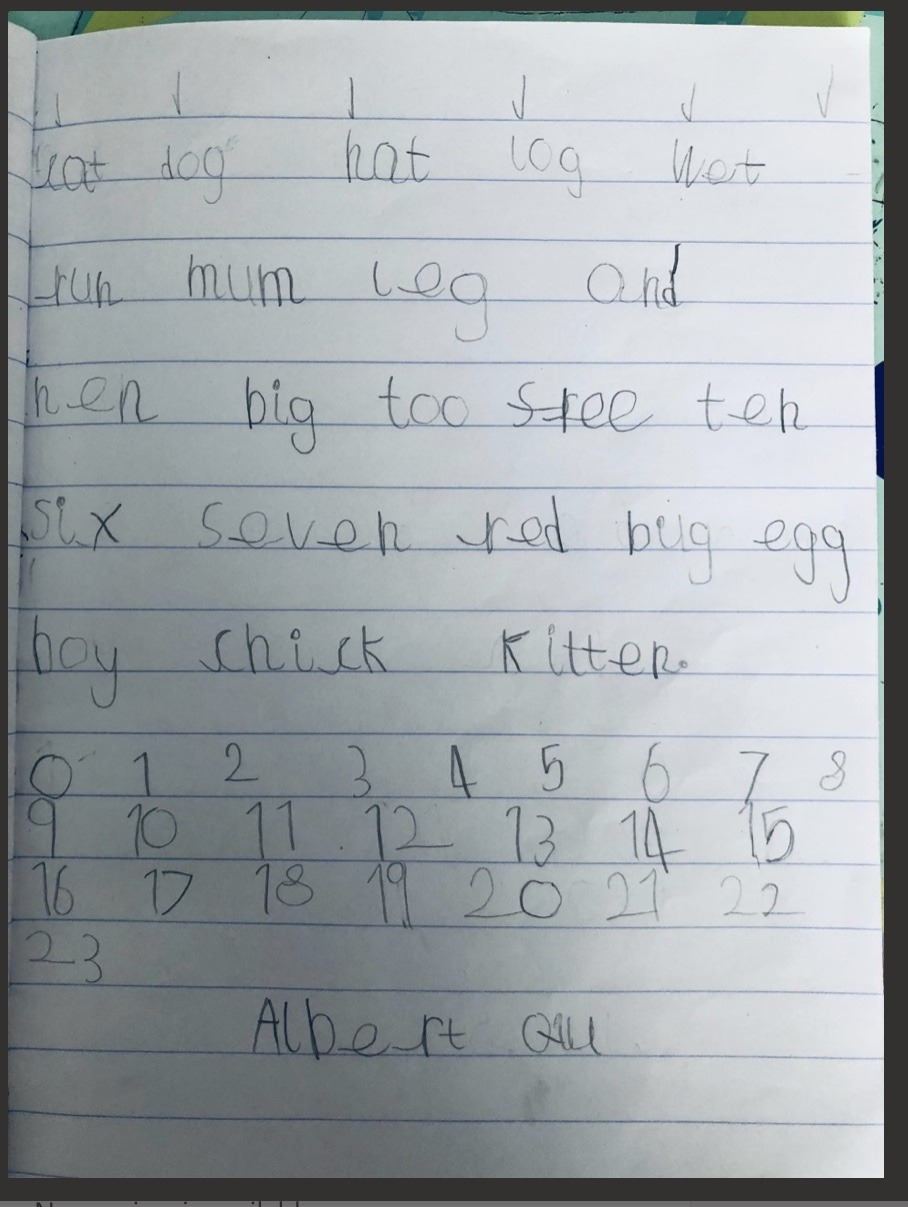 cat dog hat log wet
run mum leg and
hen big too sree ten
six seven red bug egg
boy chick Kitten.
0 1 2 3 4 5 6 7 8
9 10 11 12 13 14 15
16 17 18 19 20 21 22
23
Albert Qiu